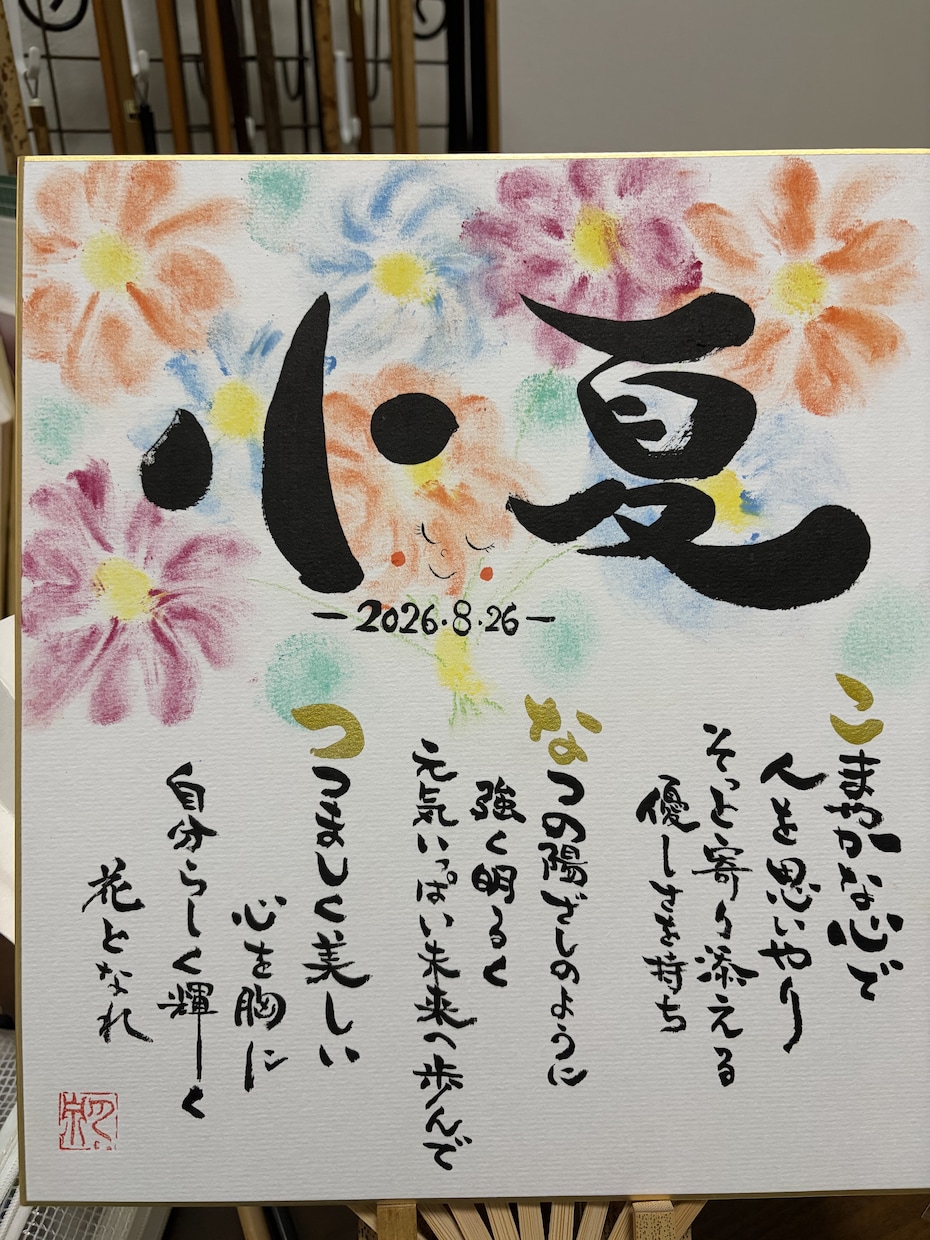 小夏
-2026.8.26-
こまやかな心で
人を思いやり
そっと寄り添える
優しさを持ち
なつの陽ざしのように
強く明るく
元気いっぱい未来へ歩んで
つつましく美しい
心を胸に
自分らしく輝く
花となれ